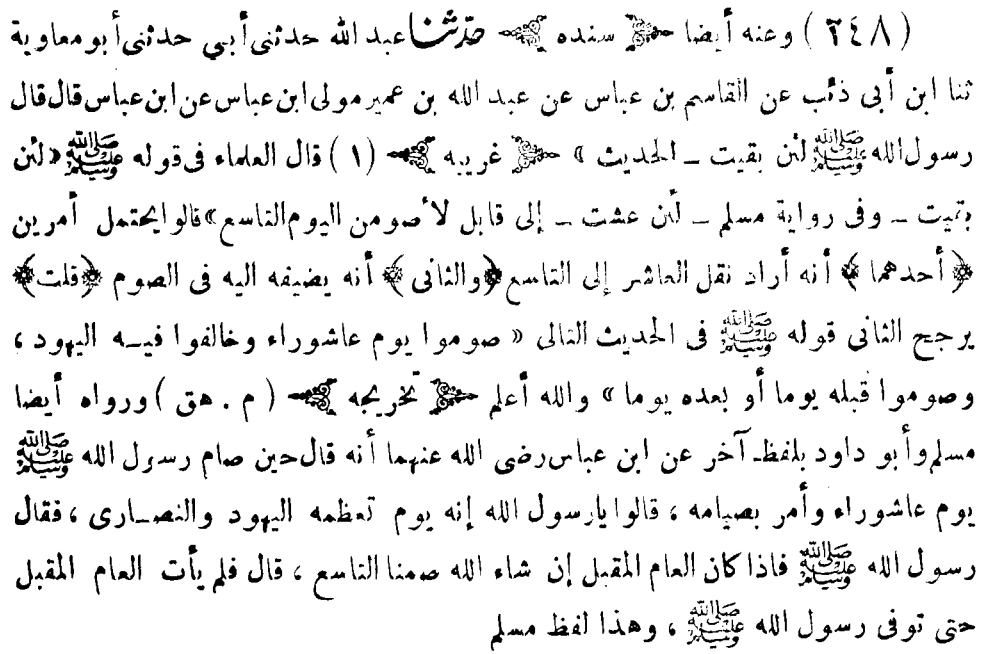 (٢٤٨) وعنه أيضا ﴿ سنده ﴾ حدثنا عبد الله حدثنى أبي حدثنى أبو معاوية
ثنا ابن أبى ذئب عن القاسم بن عباس عن عبد الله بن عمير مولى ابن عباس عن ابن عباس قال قال
رسول الله ﷺ لئن بقيت ــ الحديث » ﴿ غريبه ﴾ (١) قال العلماء فى قوله ﷺ «لئن
بقيت ــ وفى رواية مسلم ــ لئن عشت ــ إلى قابل لأصومن اليوم التاسع» قالوا يحتمل أمرين
﴿ أحدهما ﴾ أنه أراد نقل العاشر إلى التاسع ﴿والثانى﴾ أنه يضيفه اليه فى الصوم ﴿قلت﴾
يرجح الثانى قوله ﷺ فى الحديث التالى « صوموا يوم عاشوراء وخالفوا فيــه اليهود ،
وصوموا قبله يوما أو بعده يوما » والله أعلم ﴿ تخريجه ﴾ ( م . هق ) ورواه أيضا
مسلم وأبو داود بلفظ آخر عن ابن عباس رضى الله عنهما أنه قال حين صام رسول الله ﷺ
يوم عاشوراء وأمر بصيامه ، قالوا يارسول الله إنه يوم تعظمه اليهود والنصــارى ، فقال
رسول الله ﷺ فاذا كان العام المقبل إن شاء الله صمنا التاسع ، قال فلم يأت العام المقبل
حتى توفى رسول الله ﷺ ، وهذا لفظ مسلم